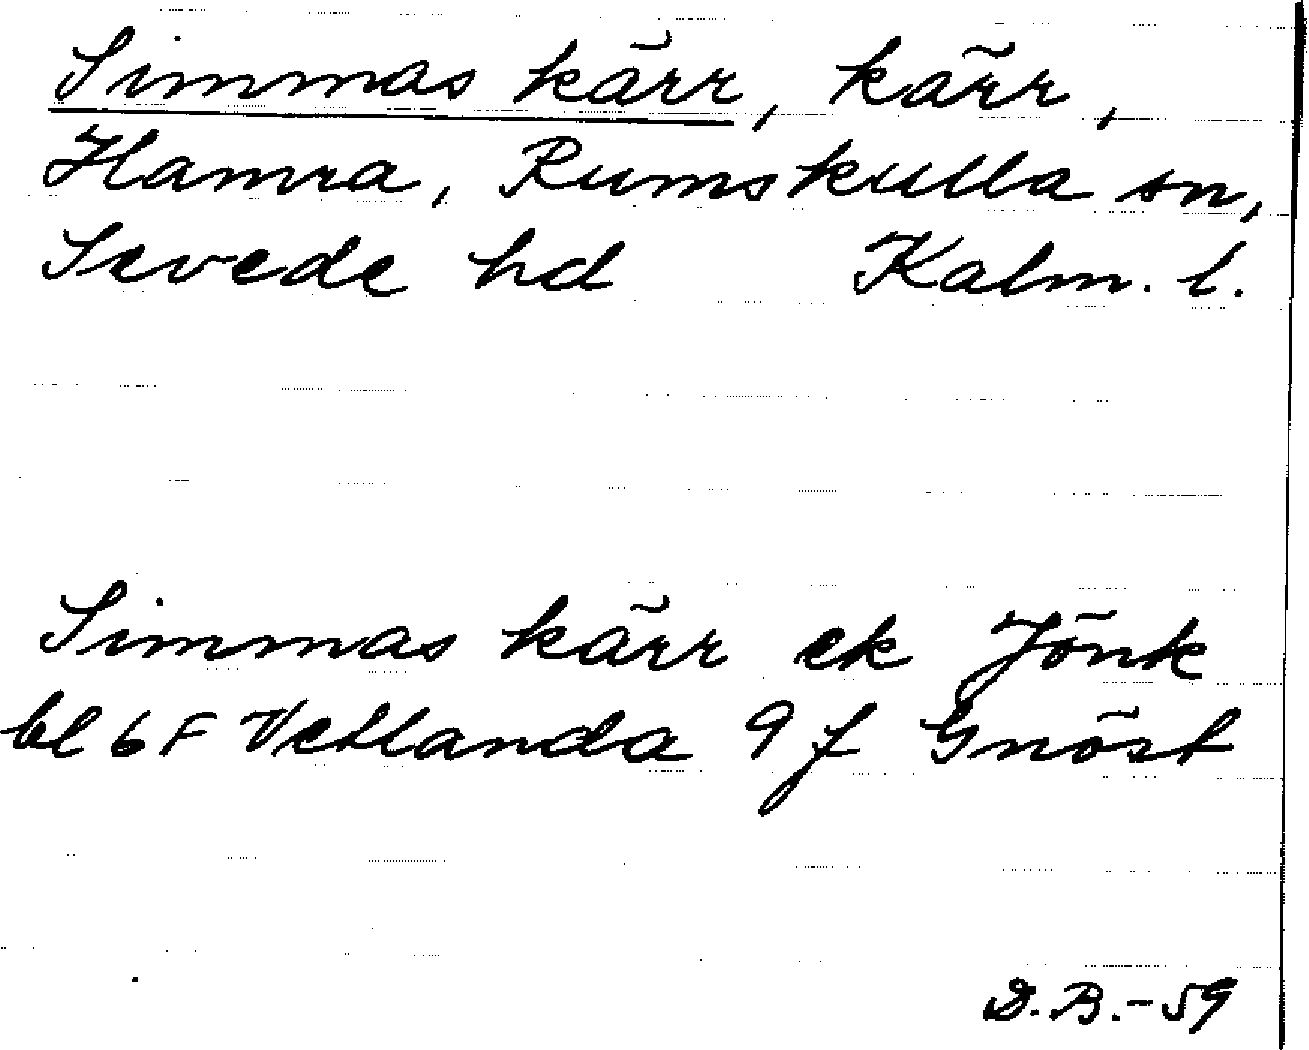 Simmas kärr, kärr,
Hamra, Rumskulla sn,
Sevede hd Kalm. l.
Simmas kärr ek Jönk
bl 6F Vetlanda 9f Gnöst
D.B.-59